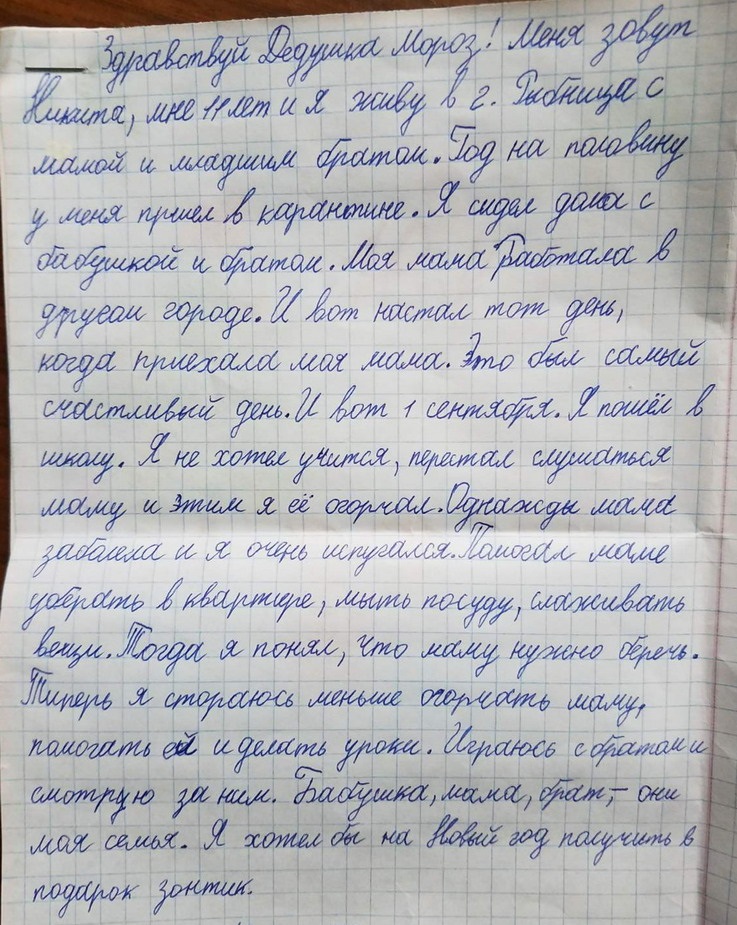 Здравствуй Дедушка Мороз! Меня зовут
Никита, мне 11 лет и я живу в г. Рыбница с
мамой и младшим братом. Год на половину
у меня пршел в карантине. Я сидел дома с
бабушкой и братом. Моя мама Работала в
другом городе. И вот настал тот день,
когда приехала моя мама. Это был самый
счастливый день. И вот 1 сентября. Я пошёл в
школу. Я не хотел учится, перестал слушаться
маму и этим я её огорчал. Однажды мама
заболела и я очень испугался. Помогал маме
убирать в квартире, мыть посуду, слаживать
вещи. Тогда я понял, что маму нужно беречь.
Типерь я стораюсь меньше огорчать маму,
помогать ей и делать уроки. Играюсь с братом и
смотрую за ним. Бабушка, мама, брат, – они
моя семья. Я хотел бы на Новый год получить в
подарок зонтик.